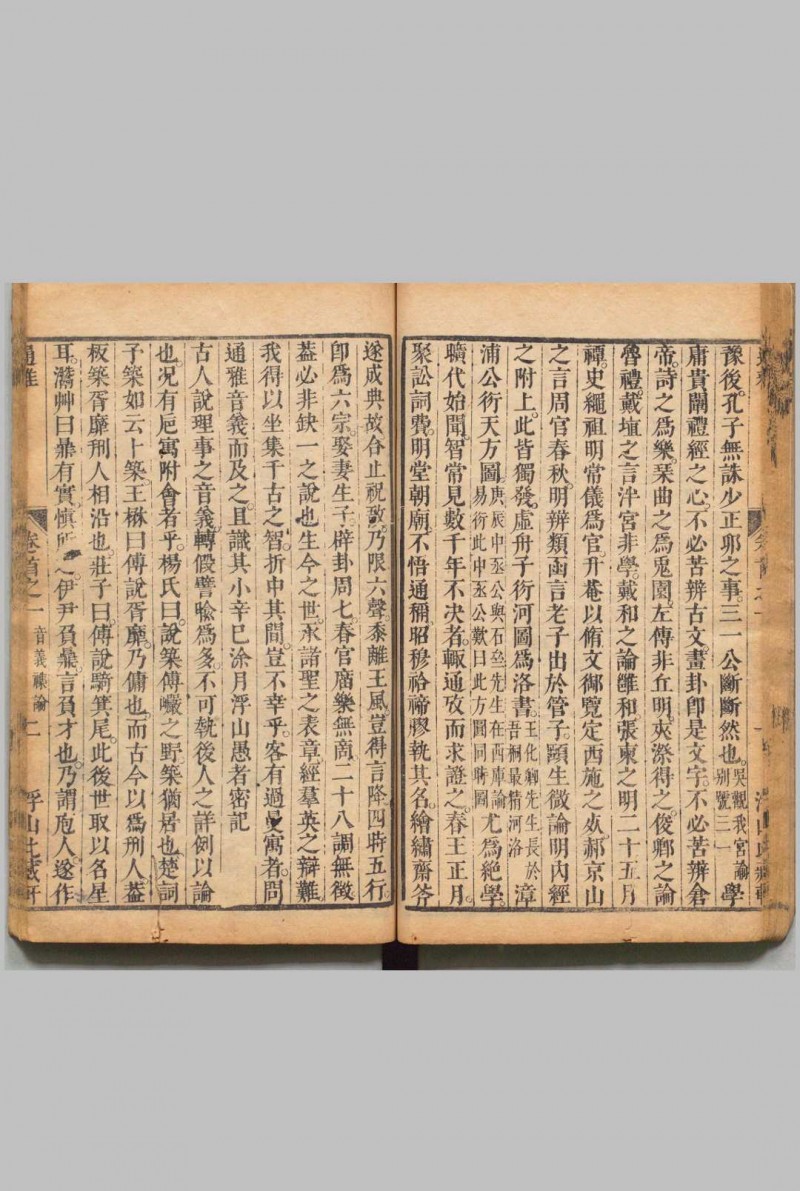 豫後。孔子無誅少正卯之事。三一公斷斷然也。吳觀我宮諭別號三一學
庸貴闡禮經之心。不必苦辨古文。畫卦卽是文字。不必苦辨倉
帝。詩之爲樂。琹曲之爲兎園。左傳非丘明。夾漈得之。俊卿之論
魯禮。戴埴之言泮宮非學。戴和之論雝和。張萊之明二十五月
禫。史繩祖明常儀爲官。升菴以脩文御覽定西施之。郝京山
之言周官春秋。明辨類函言老子出於管子。顯生微論明內經
之附上。此皆獨發。虛舟子衍河圖爲洛書。王化卿先生長於吾桐最精河洛漳
浦公衍天方圖。庚辰中丞公與石先生在西庫論易衍此中丞公歎曰此方圓同時圖尤爲絕學。
曠代始聞。智常見數千年不决者。輒通攷而求證之。春王正月。
聚訟詞費。明堂朝廟。不悟通稱。昭穆祫禘。膠執其名。繪繡齋
遂成典故。合止祝敔。乃限六聲。黍離王風。豈得言降。四時五行
卽爲六宗。娶妻生子。辟卦周七。春官商樂無商。二十八調無徵
葢必非缺一之說也。生今之世。承諸聖之表章。經羣英之辯難
我得以坐集千古之智。折中其間。豈不幸乎。客有過曼寓者。問
通雅音義而及之。且識其小。辛巳涂月浮山愚者密記
古人說理事之音義。轉假譬喩爲多。不可執後人之詳例以論
也。况有巵寓附會者乎。楊氏曰。說築傅巖之野。築猶居也。楚詞
子築如云卜築。王楙曰。傅說胥靡。乃傭也。而古今以爲刑人。葢
板築胥靡刑人相沿也。莊子曰。傅說騎箕尾。此後世取以名星
耳。灊艸曰。鼎有實。慎所之。伊尹負鼎。言負才也。乃謂庖人。遂作
通雅
卷首之一 音義襍論 二
浮山此藏軒